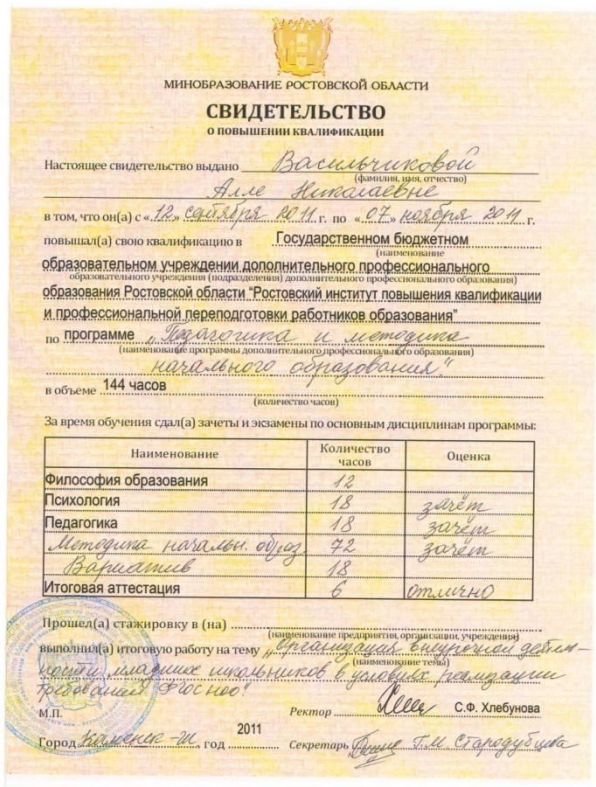 МИНОБРАЗОВАНИЕ РОСТОВСКОЙ ОБЛАСТИ
СВИДЕТЕЛЬСТВО
О ПОВЫШЕНИИ КВАЛИФИКАЦИИ
Настоящее свидетельство выдано Васильчиковой
(фамилия, имя, отчество)
Алле Николаевне
в том, что он(а) с «12» сентября 2011 г. по «07» ноября 2011 г.
повышал(а) свою квалификацию в Государственном бюджетном
(наименование
образовательном учреждении дополнительного профессионального
образовательного учреждения (подразделения) дополнительного профессионального образования)
образования Ростовской области "Ростовский институт повышения квалификации
и профессиональной переподготовки работников образования"
по программе „Педагогика и методика
(наименование программы дополнительного профессионального образования)
начального образования"
в объеме 144 часов
(количество часов)
За время обучения сдал(а) зачеты и экзамены по основным дисциплинам программы:
Наименование Количество часов Оценка
Философия образования 12
Психология 18 зачёт
Педагогика 18 зачёт
Методика начальн. образ. 72 зачёт
Вариатив 18
Итоговая аттестация 6 отлично
Прошел(а) стажировку в (на)
(наименование предприятия, организации, учреждения)
выполнил(а) итоговую работу на тему „Организация внеурочной деятель-
(наименование темы)
ности младших школьников в условиях реализации
требований ФГОС НОО"
М.П. Ректор С.Ф. Хлебунова
Город Каменск-Ш, год 2011 Секретарь Т.М. Стародубцева